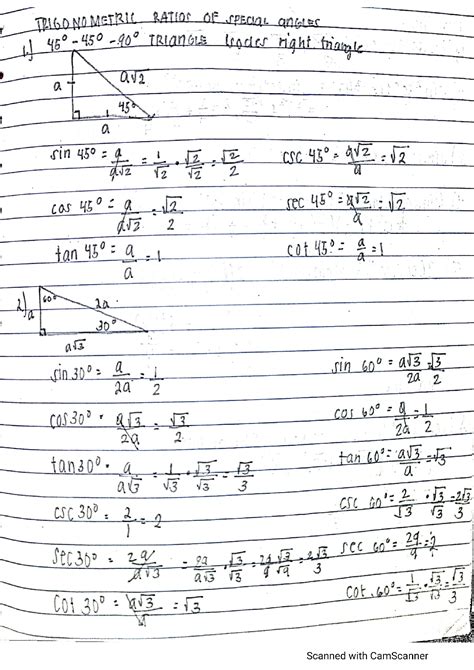 TRIGONOMETRIC RATIOS OF SPECIAL angles
1.) 45° - 45° - 90° TRIANGLE Isoceles right triangle
a
a√2
45°
a
sin 45° = a/a√2 = 1/√2 · √2/√2 = √2/2
csc 45° = a√2/a = √2
cos 45° = a/a√2 = √2/2
sec 45° = a√2/a = √2
tan 45° = a/a = 1
cot 45° = a/a = 1
2.)
60°
a
2a
30°
a√3
sin 30° = a/2a = 1/2
sin 60° = a√3/2a = √3/2
cos 30° = a√3/2a = √3/2
cos 60° = a/2a = 1/2
tan 30° = a/a√3 = 1/√3 · √3/√3 = √3/3
tan 60° = a√3/a = √3
csc 30° = 2/1 = 2
csc 60° = 2/√3 · √3/√3 = 2√3/3
sec 30° = 2a/a√3 = 2a/a√3 · √3/√3 = 2√3/3
sec 60° = 2a/a = 2
cot 30° = a√3/a = √3
cot 60° = 1/√3 · √3/√3 = √3/3
Scanned with CamScanner